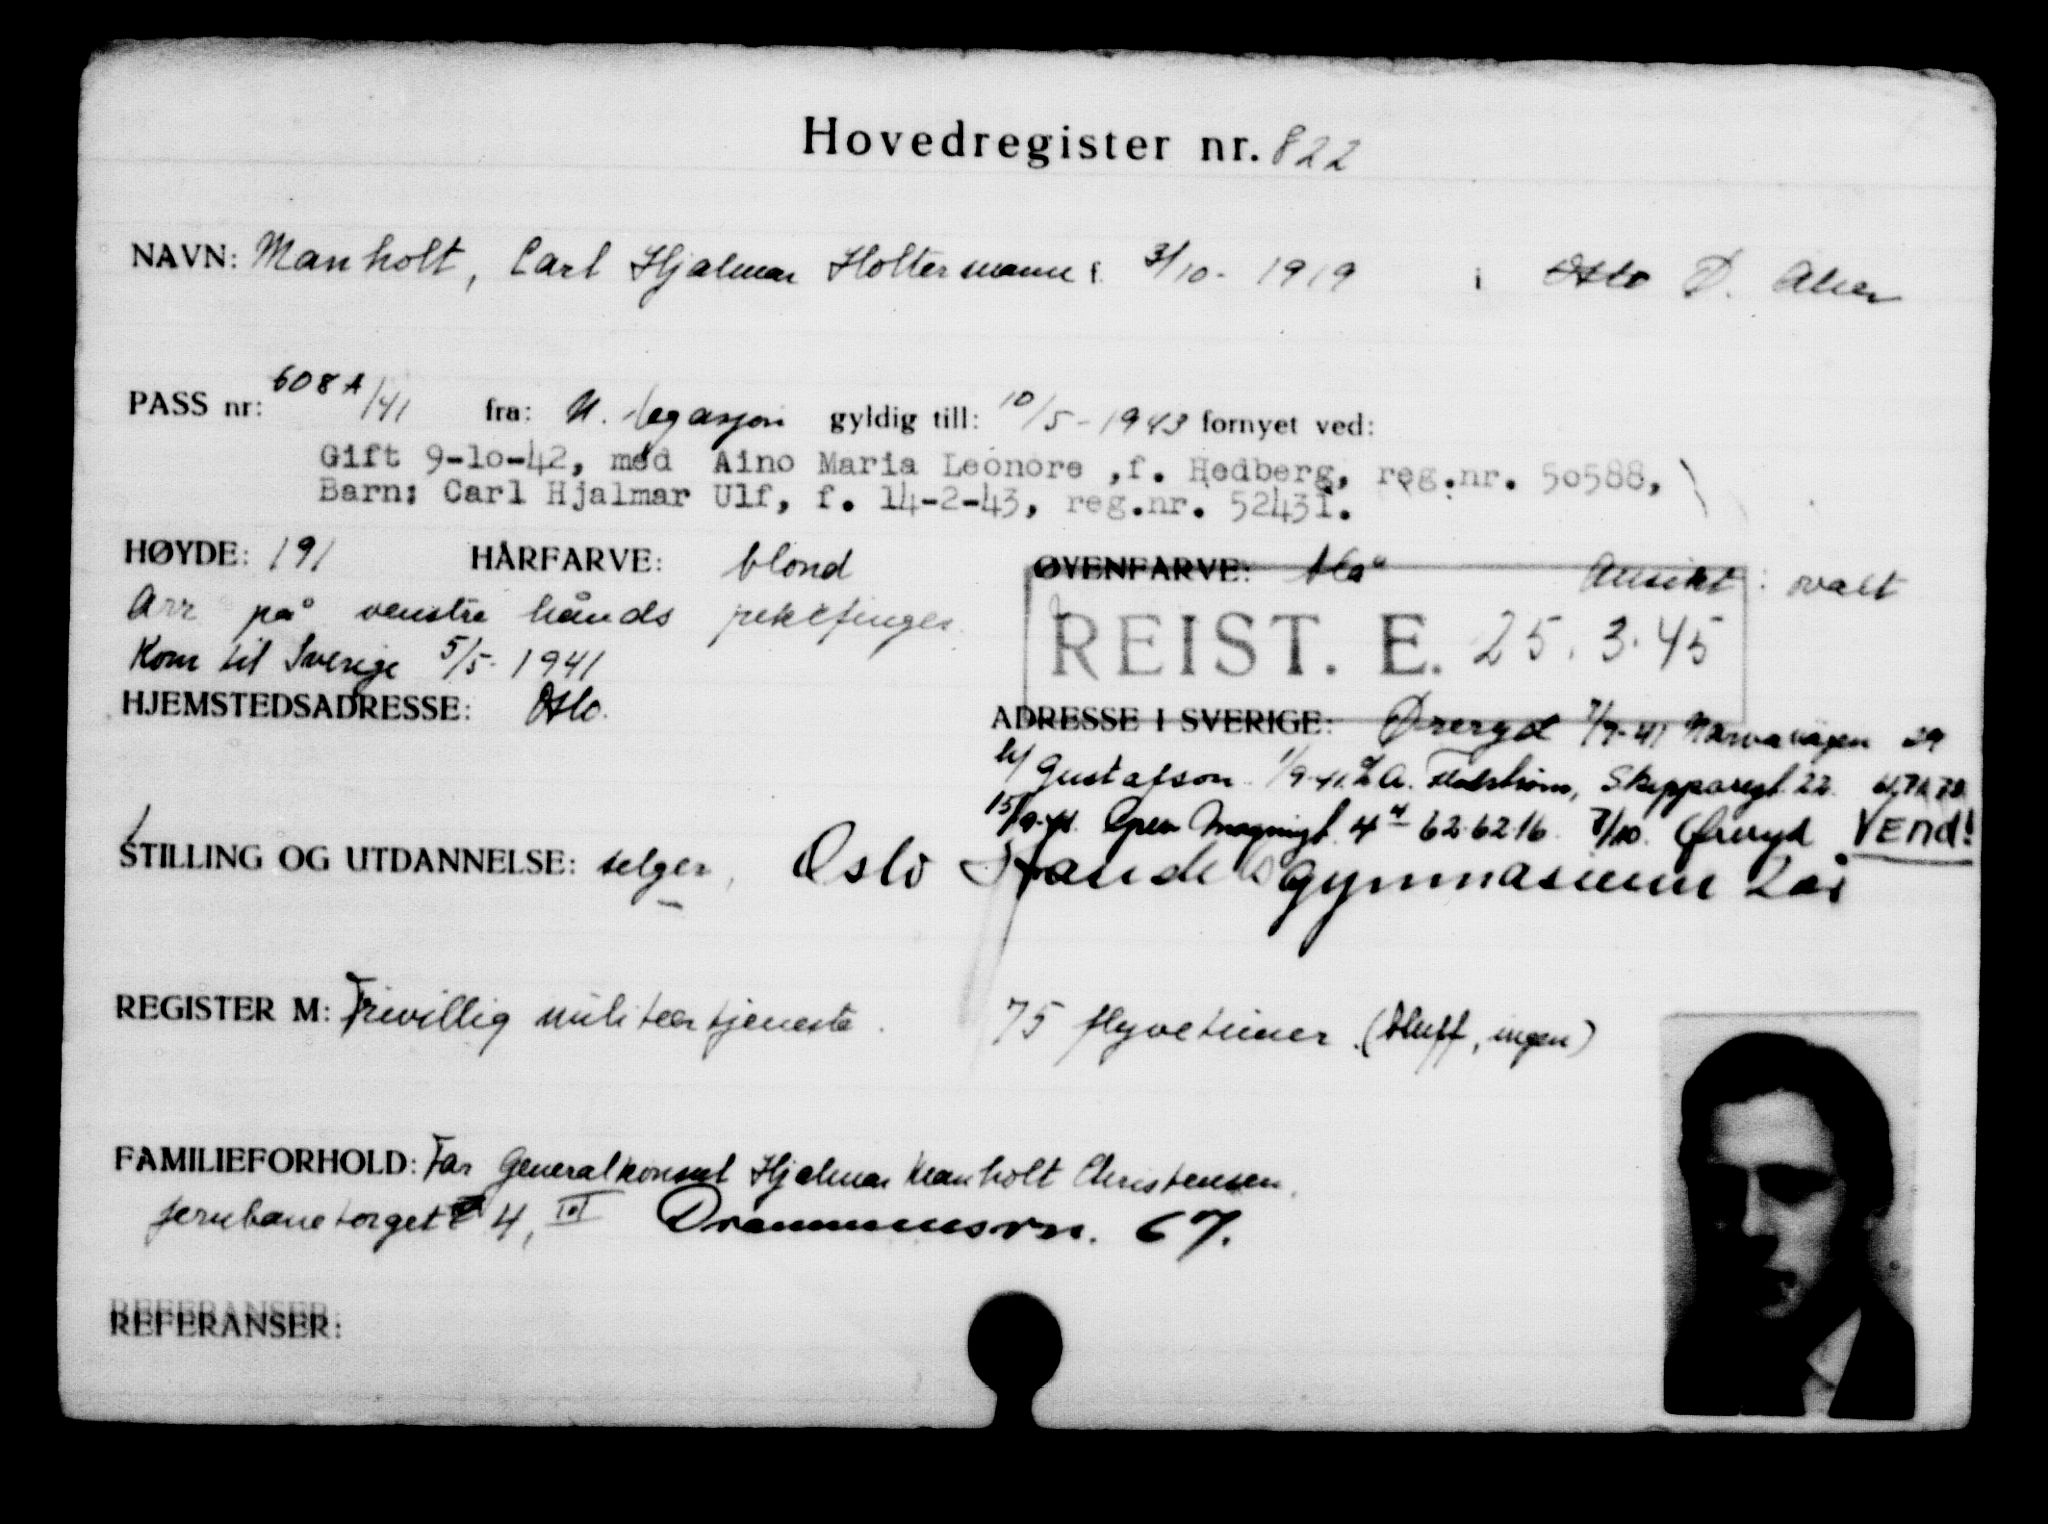 Hovedregister nr. 822
NAVN: Manholt, Carl Hjalmar Holtermann f. 3/10- 1919 i Oslo D. Aker
PASS nr: 608 A/41 fra: N. legasjon gyldig till: 10/5-1943 fornyet ved:
Gift 9-10-42, med Aino Maria Leonore ,f. Hedberg, reg.nr. 50588,
Barn: Carl Hjalmar Ulf, f. 14-2-43, reg.nr. 52431.
HØYDE: 191 HÅRFARVE: blond ØYENFARVE: blå Ansikt: ovalt
Arr på venstre hånds pekefinger.
REIST. E. 25.3.45
Kom til Sverige 5/5-1941
HJEMSTEDSADRESSE: Oslo.
ADRESSE I SVERIGE: Øreryd 7/7-41 Narvavägen 29
b/ Gustafson 1/9-41. A. Skepparegt. 22.
15/9-41. 4 62 62 16 7/10. Øreryd VEND!
STILLING OG UTDANNELSE: selger, Oslo Handelsgymnasium 2år
REGISTER M: Frivillig militærtjeneste. 75 flyvetimer (bluff, ingen)
FAMILIEFORHOLD: Far Generalkonsul Hjalmar Manholt Christensen.
Jernbanetorget 4, III Drammensvn. 67.
REFERANSER: